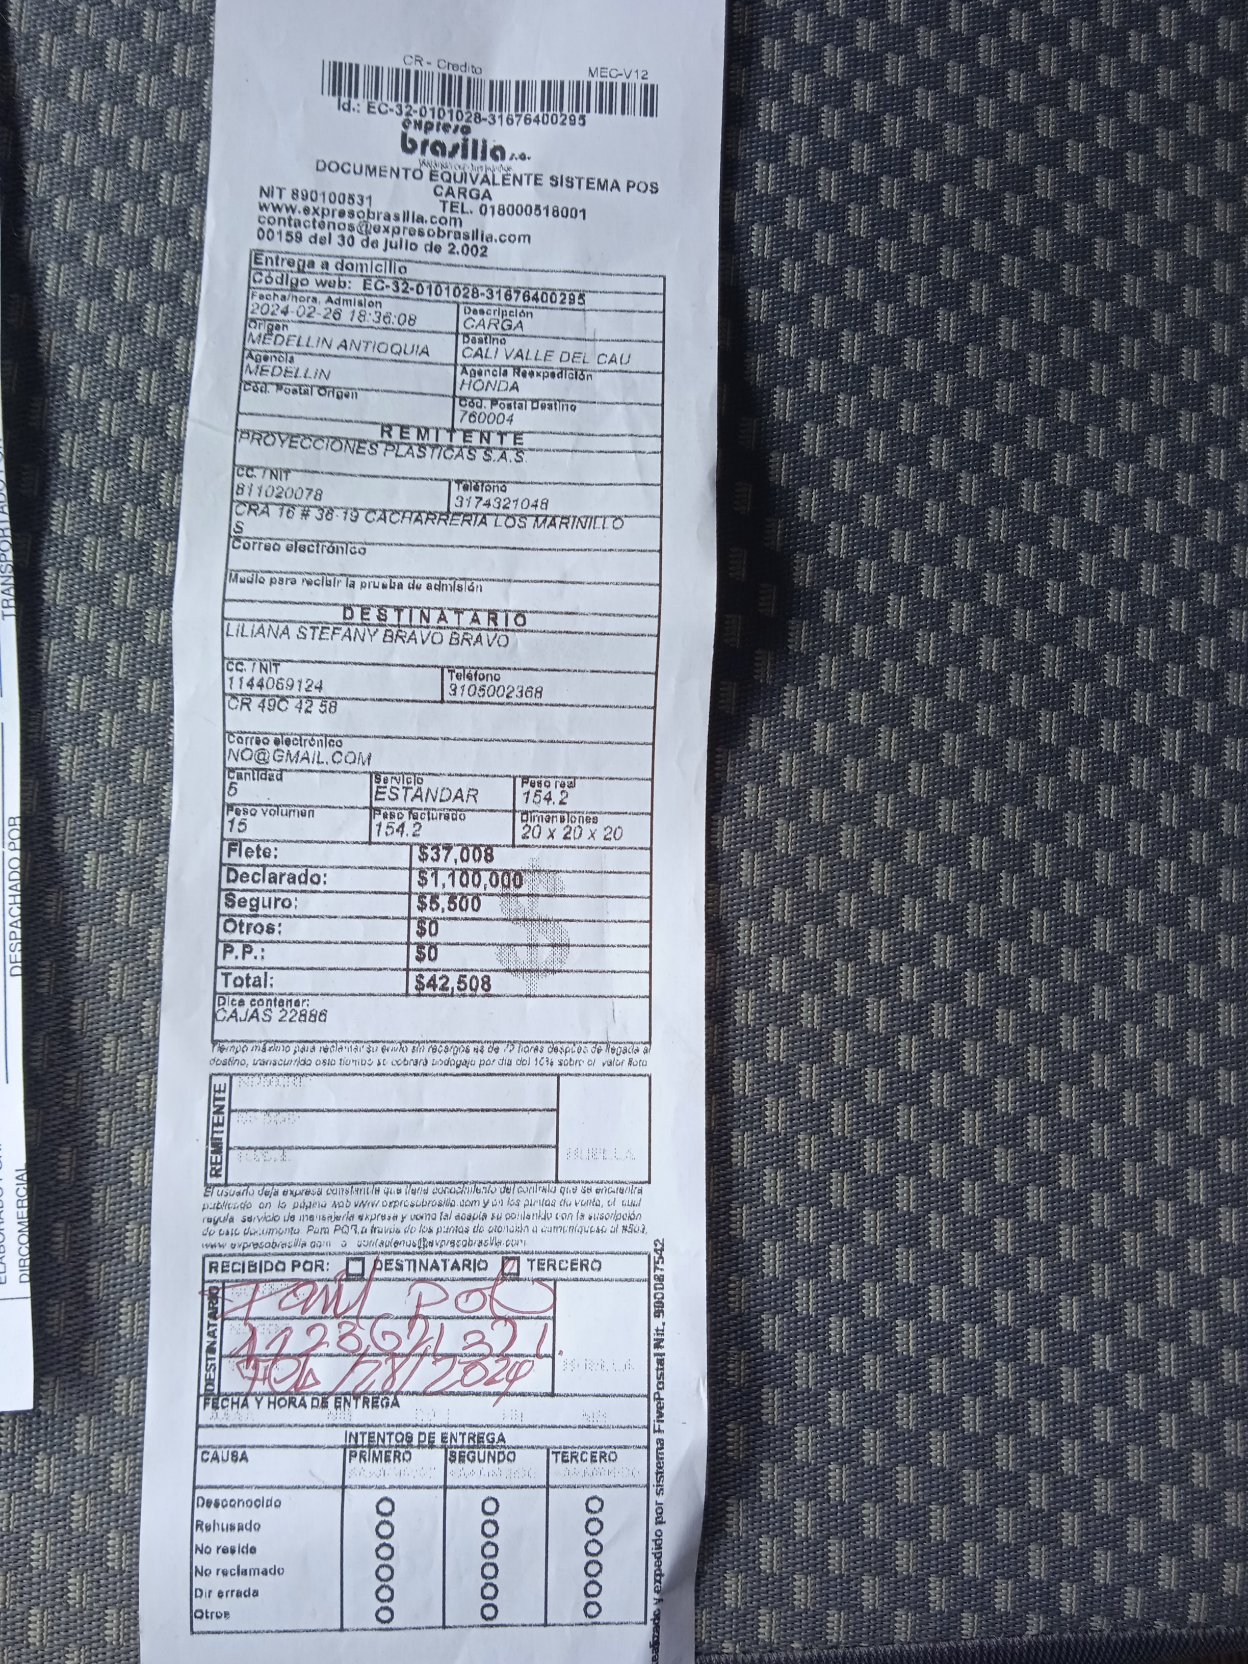 CR - Credito
MEC-V12
Id.: EC-32-0101028-31676400295
expreso
brasilia s.a.
DOCUMENTO EQUIVALENTE SISTEMA POS
CARGA
NIT 890100531
TEL. 018000518001
www.expresobrasilia.com
contactenos@expresobrasilia.com
00159 del 30 de julio de 2.002
Entrega a domicilio
Código web: EC-32-0101028-31676400295
Fecha/hora. Admision
2024-02-26 18:36:08
Descripción
CARGA
Origen
MEDELLIN ANTIOQUIA
Destino
CALI VALLE DEL CAU
Agencia
MEDELLIN
Agencia Reexpedición
HONDA
Cód. Postal Origen
Cód. Postal Destino
760004
REMITENTE
PROYECCIONES PLASTICAS S.A.S.
CC. / NIT
811020078
Teléfono
3174321048
CRA 16 # 36-19 CACHARRERIA LOS MARINILLO
S
Correo electrónico
Medio para recibir la prueba de admisión
DESTINATARIO
LILIANA STEFANY BRAVO BRAVO
CC. / NIT
1144069124
Teléfono
3105002368
CR 49C 42 58
Correo electrónico
NO@GMAIL.COM
Cantidad
6
Servicio
ESTANDAR
Peso real
154.2
Peso volumen
15
Peso facturado
154.2
Dimensiones
20 x 20 x 20
Flete: $37,008
Declarado: $1,100,000
Seguro: $5,500
Otros: $0
P.P.: $0
Total: $42,508
Dice contener:
CAJAS 22886
Tiempo máximo para reclamar su envío sin recargos es de 72 horas despues de llegada al
destino, transcurrido este tiempo se cobrará bodegaje por dia del 10% sobre el valor flete
REMITENTE
NOMBRE
HUELLA
El usuario deja expresa constancia que tiene conocimiento del contrato que se encuentra
publicado en la página web www.expresobrasilia.com y en los puntos de venta, el cual
regula servicio de mensajería expresa y como tal acepta su contenido con la suscripción
de este documento. Para PQR, a través de los puntos de atención o comuníquese al #503,
www.expresobrasilia.com o contactenos@expresobrasilia.com
RECIBIDO POR: DESTINATARIO TERCERO
DESTINATARIO
1123621321.
Feb/28/2024
HUELLA
FECHA Y HORA DE ENTREGA
INTENTOS DE ENTREGA
CAUSA PRIMERO SEGUNDO TERCERO
Desconocido
Rehusado
No reside
No reclamado
Dir errada
Otros
Realizado y expedido por sistema FivePostal Nit. 900087542
DESPACHADO POR
DIRCOMERCIAL